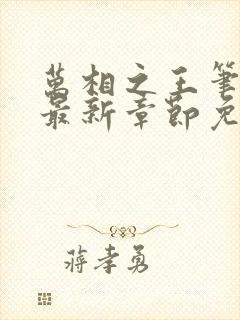 萬相之王筆
最新章節免
蔣孝勇